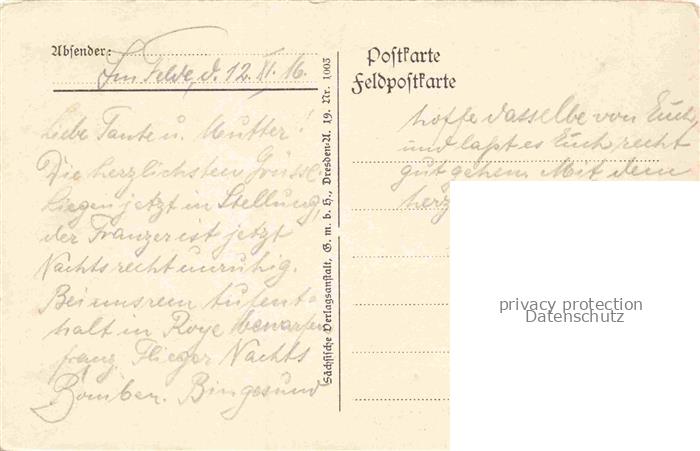 Absender:
Im Felde, d. 12. XI. 16.
Liebe Tante u. Mutter!
Die herzlichsten Grüsse.
Liegen jetzt in Stellung,
der Franzer ist jetzt
Nachts recht unruhig.
Bei unsrem Aufent-
halt in Roye bewarfen
franz. Flieger Nachts
Bomben. Bin gesund
Sächsische Verlagsanstalt, G. m. b. H., Dresden-A. 19. Nr. 1005
Postkarte
Feldpostkarte
hoffe dasselbe von Euch,
und laßt es Euch recht
gut gehen. Mit dem
herz
privacy protection
Datenschutz